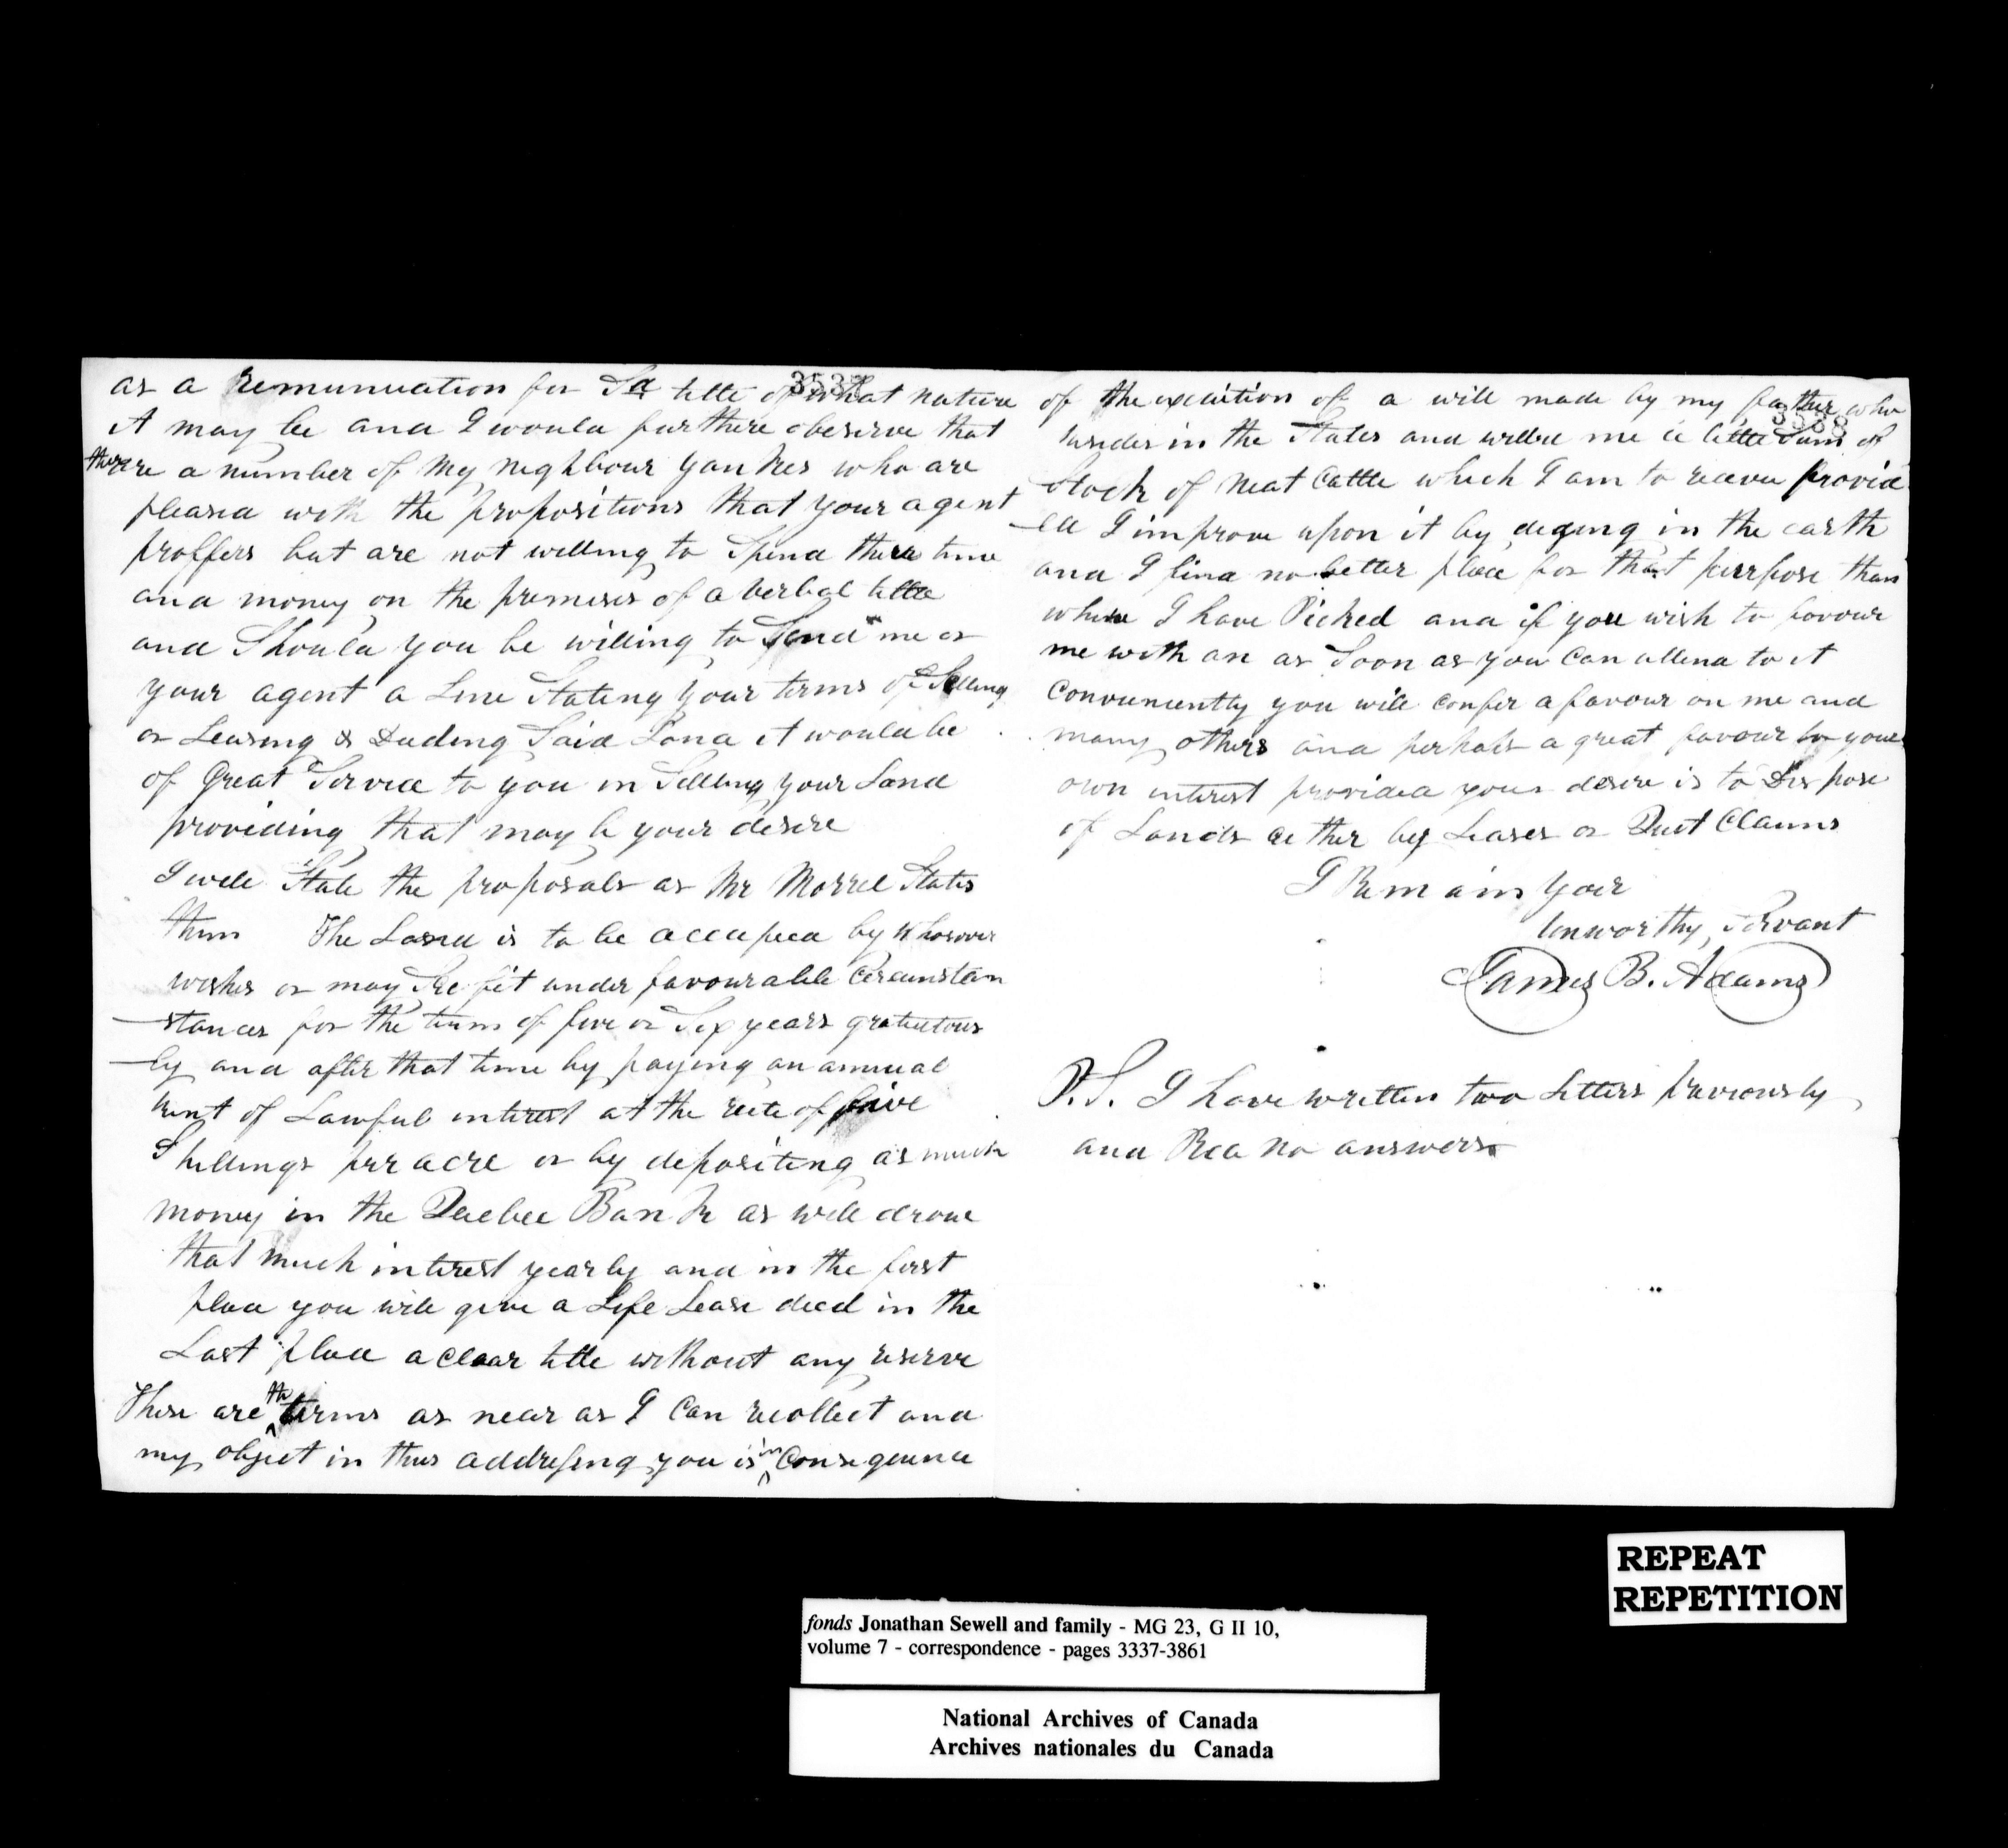 as a remunuation for Sd title of what nature
it may be and I would furthere observe that
there are a number of my neighbour yankees who are
pleased with the propositions that your agent
proffers but are not willing to Spend there time
and money on the premises of a verbal title
and Should you be willing to Send me or
your agent a Line Stating your terms of Selling
or Leasing & Deeding Said Land it would be
of Great Service to you in Selling your Land
providing that may be your desire
I will State the proposals as Mr Morrel States
them The Land is to be occupied by Whosover
wishes or may See fit under favourable Circumstan
-stances for the term of five or Six years gratuitous
-ly and after that time by paying an annual
rent of Lawful interest at the rate of five
Shillings per acre or by depositing as much
money in the Quebec Bank as will drove
that much interest yearly and in the first
place you will give a Life Lease deed in the
Last place a clear title without any reserve
These are the terms as near as I Can recollect and
my object in thus addressing you is in Consequence
3537
of the exicution of a will made by my father who
resides in the States and willed me a little Sum of
3538
Stock of neat Cattle which I am to receive provid
-ed I improve upon it by diging in the earth
and I find no better place for that purpose than
where I have Picked and if you wish to favour
me with an as Soon as you Can attend to it
Conveniently you will confer a favour on me and
many others and perhaps a great favour to your
own interest provided your desire is to Dispose
of Lands either by Leases or Quit Claims
I Remain Your
Unworthy Servant
James B. Adams
P.S. I have written two Letters previously
and Recd no answers
REPEAT
REPETITION
fonds Jonathan Sewell and family - MG 23, G II 10,
volume 7 - correspondence - pages 3337-3861
National Archives of Canada
Archives nationales du Canada